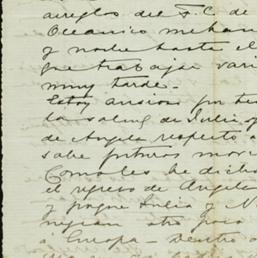 arreglos del F.C. de
Oceanico me han
y noche hasta el
que trabajar vari
muy tarde.-
Estoy ansioso por te
la salud de Julia y
de Angela respecto a
sobre futuros movi
Como les he dicho
el regreso de Angela
y porque Julia y N
otro poco
a Europa - Dentro